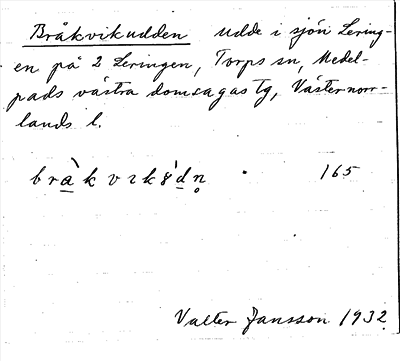 Bråkvikudden udde i sjön Lering-
en på 2 Leringen, Torps sn, Medel-
pads västra domsagas tg, Västernorr-
lands l.
165
Valter Jansson 1932